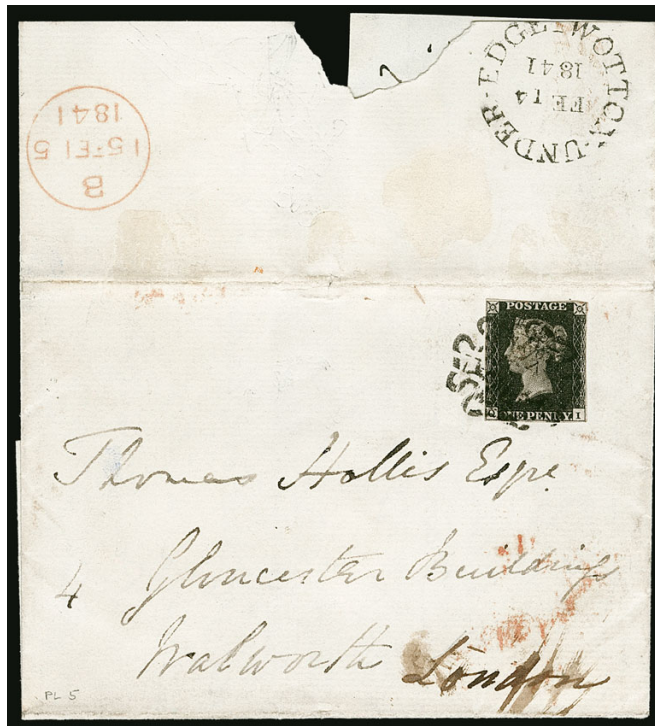 WOTTON-UNDER-EDGE
FE 14
1841
B
15 FE 15
1841
POSTAGE
ONE PENNY
I
Thomas Hollis Esqre
4 Gloucester Buildings
Walworth London
PL 5